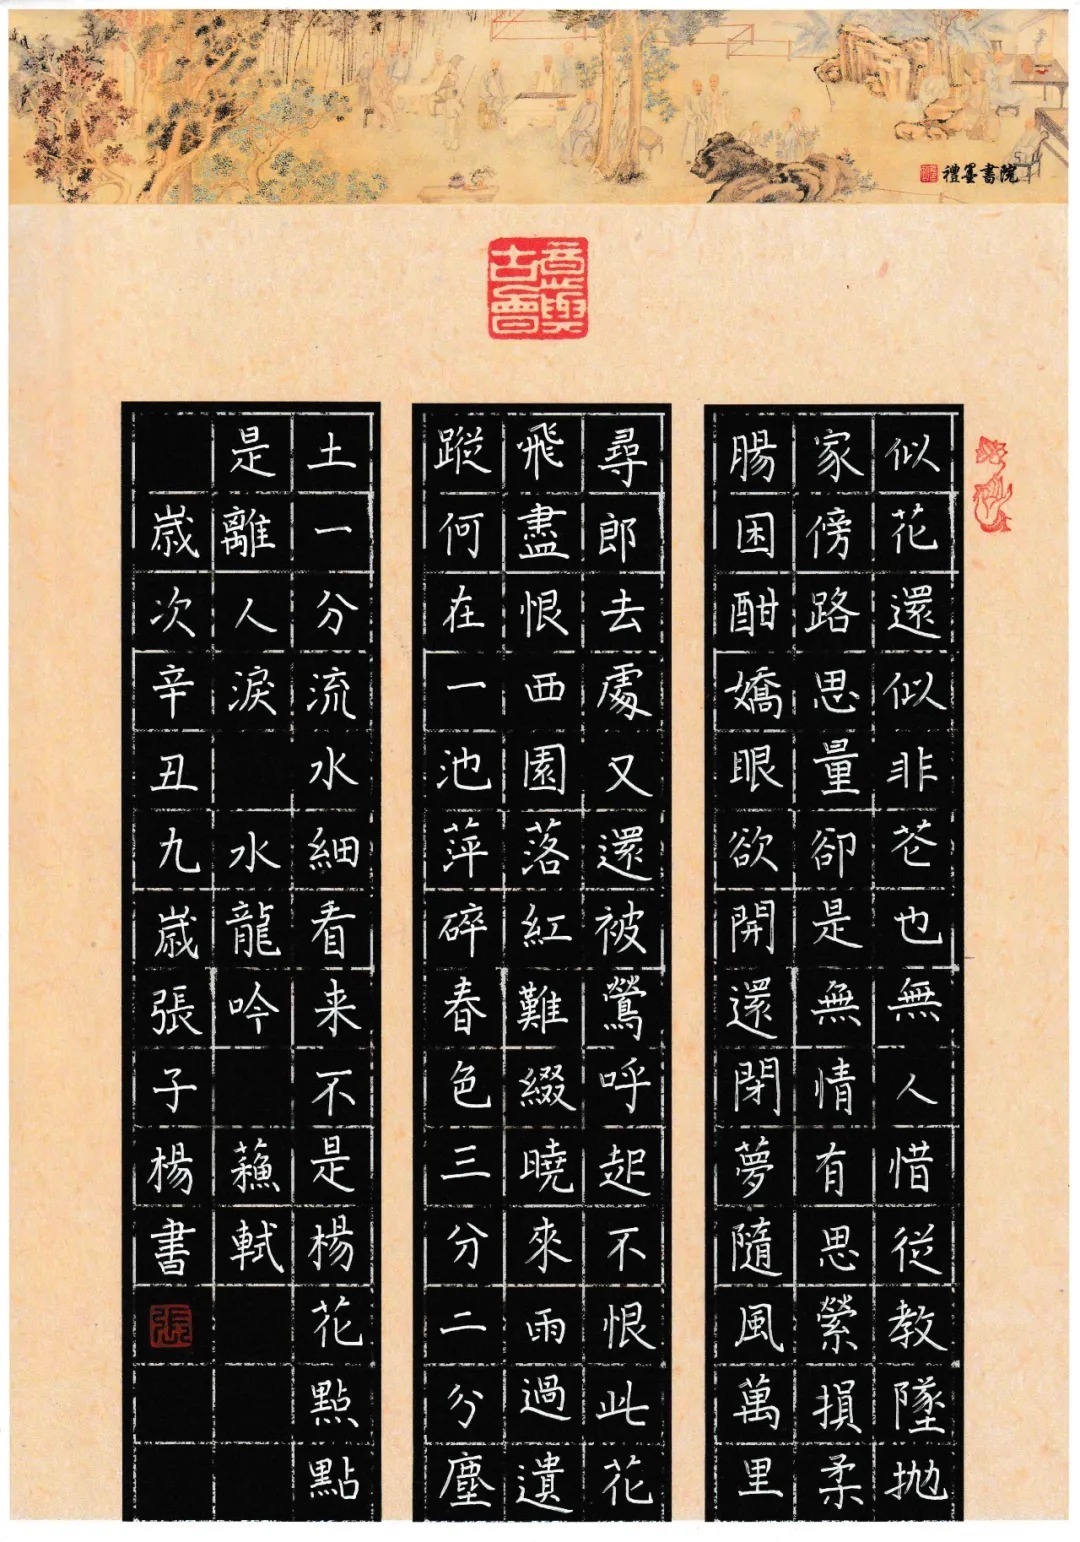 禮墨書院
意與古會
似花還似非芲也無人惜從教墜抛
家傍路思量卻是無情有思縈損柔
腸困酣嬌眼欲開還閉夢隨風萬里
尋郎去處又還被鶯呼起不恨此花
飛盡恨西園落紅難綴曉來雨過遺
蹤何在一池萍碎春色三分二分塵
土一分流水細看来不是楊花點點
是離人淚 水龍吟 蘇軾
歲次辛丑九歲張子楊書
張